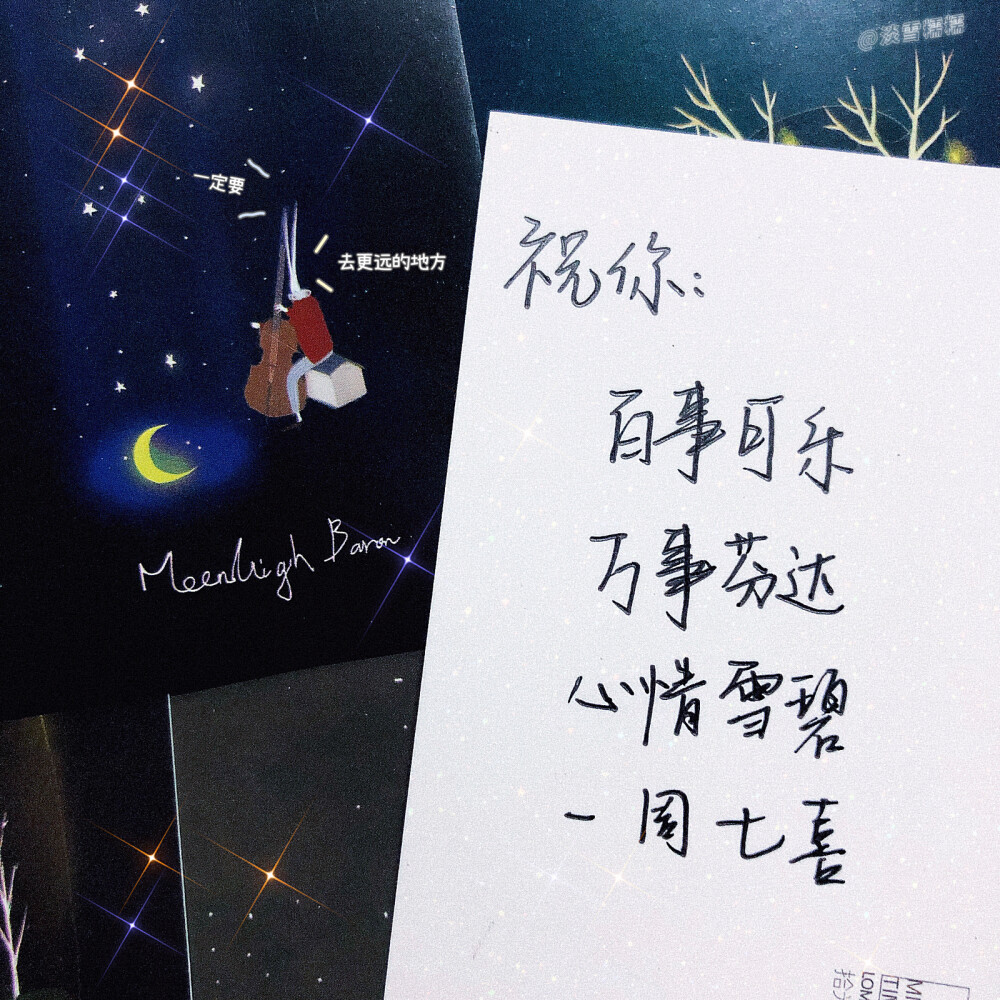 @淡雪糯糯
一定要
去更远的地方
祝你:
百事可乐
万事芬达
心情雪碧
一周七喜
Baron